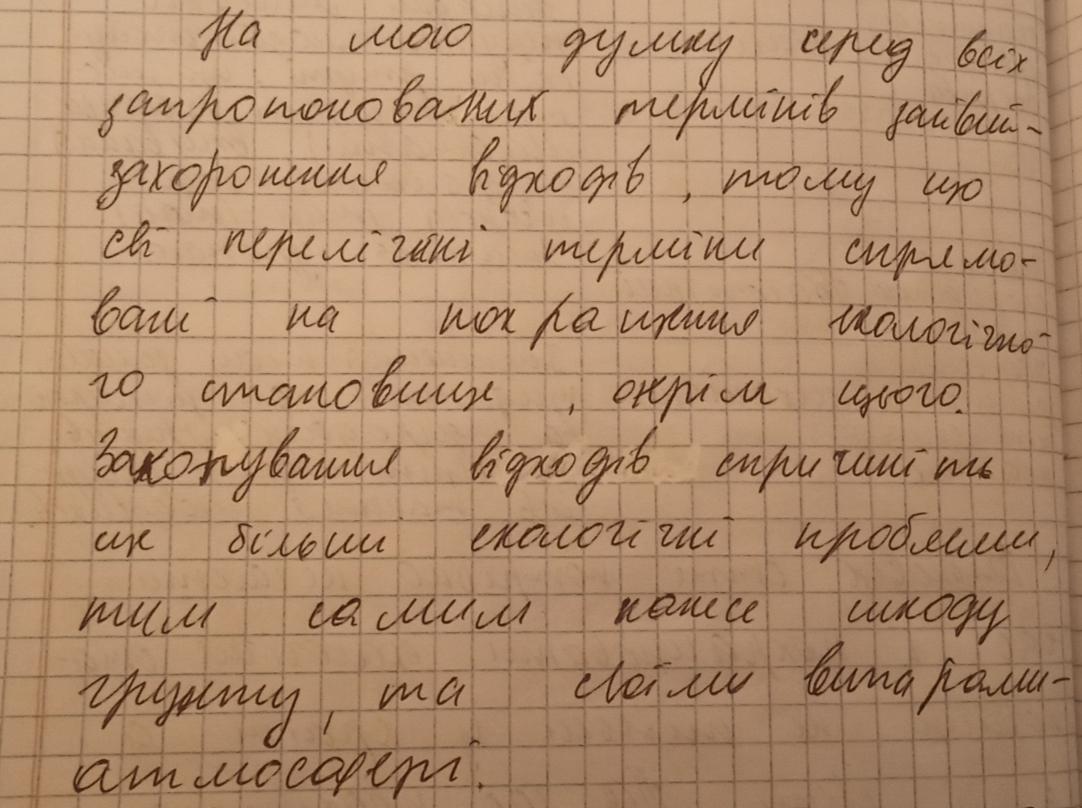 На мою думку серед всіх
запропонованих термінів зайвий-
захоронення відходів, тому що
всі перелічені терміни спрямо-
вані на покращення екологічно-
го становище, окрім цього.
Закопування відходів спричинить
ще більші екологічні проблеми,
тим самим наже шкоду
грунту, та своїми випарами-
атмосфері.